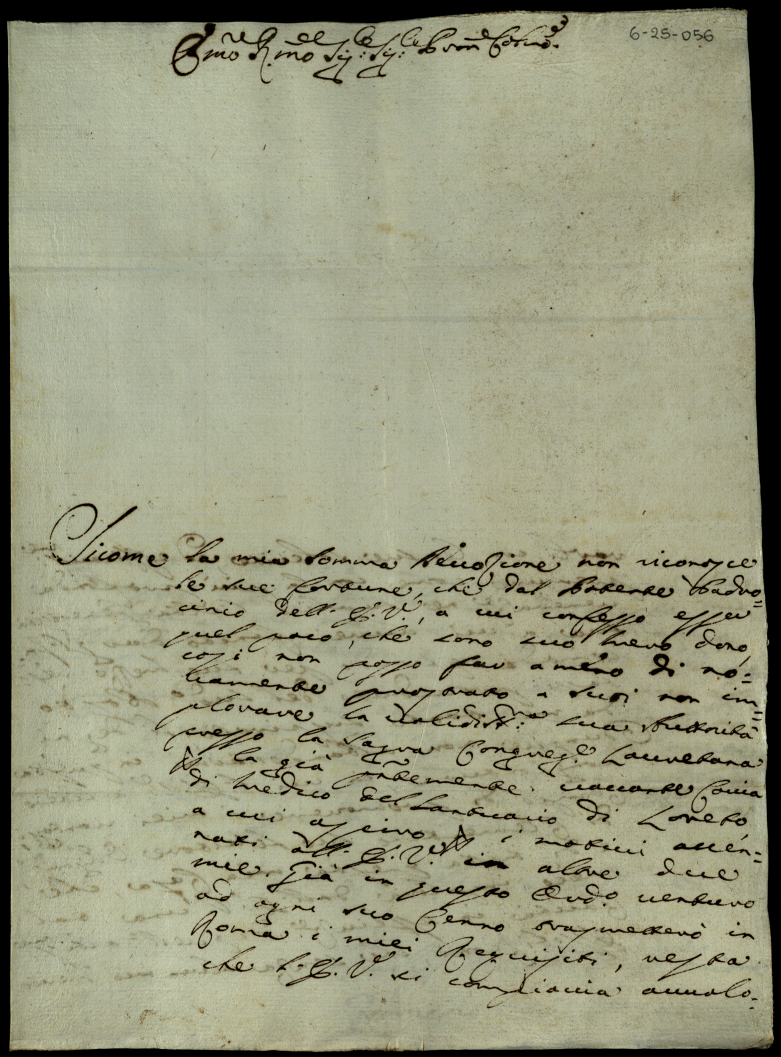 6-25-056
Em̃o R.mo Sig:re Sig:re Pron̄e Col̄mo
Sicome la mia somma devozione non riconosce
le sue fortune, che dal Potente Padro=
cinio dell' E. V., a cui confesso esser
quel poco, che sono suo mero dono,
cosi non posso far a meno di no=
uamente prostrato a Suoi non im=
plorare la ualidiss:ma sua Autorità
presso la Sagra Congreg.e Lauretana
la già uaccante
di Medico del Santuario di Loreto
a cui aspiro i motiui accen=
nati all' E. V. in altre due
mie. Già in questo uenturo
ad ogni suo Cenno trasmetterò in
Roma i miei Requisiti, resta
che l' E. V. si compiaccia auualo=